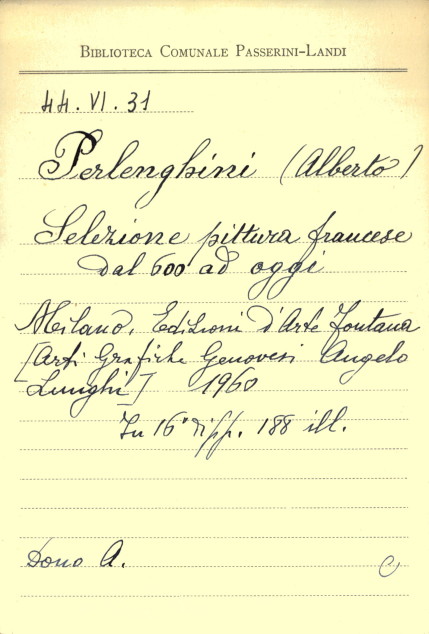 BIBLIOTECA COMUNALE PASSERINI-LANDI
44.VI.31
Perlenghini (Alberto)
Selezione pittura francese
dal 600 ad oggi
Milano, Edizioni d'Arte Fontana
[Arti Grafiche Genovesi Angelo
Lunghi] 1960
In 16° di pp. 188 ill.
Dono A.
C